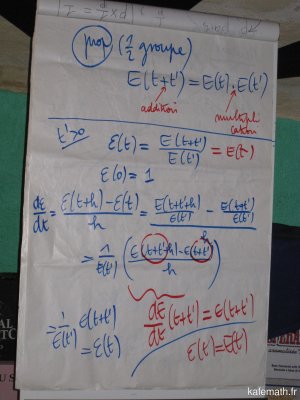 prop (1/2 groupe)
E(t+t') = E(t) . E(t')
addition
multipli
cation
t'>0
ε(t) = E(t+t') / E(t') = E(t)
ε(0) = 1
dε/dt = (ε(t+h) - ε(t)) / h = (E(t+t'+h)/E(t') - E(t+t')/E(t')) / h
= 1/E(t') ( (E(t+t'+h) - E(t+t')) / h )
dE/dt (t+t') = E(t+t')
= 1/E(t') E(t+t')
= ε(t)
ε(t) = E(t)
kafemath.fr